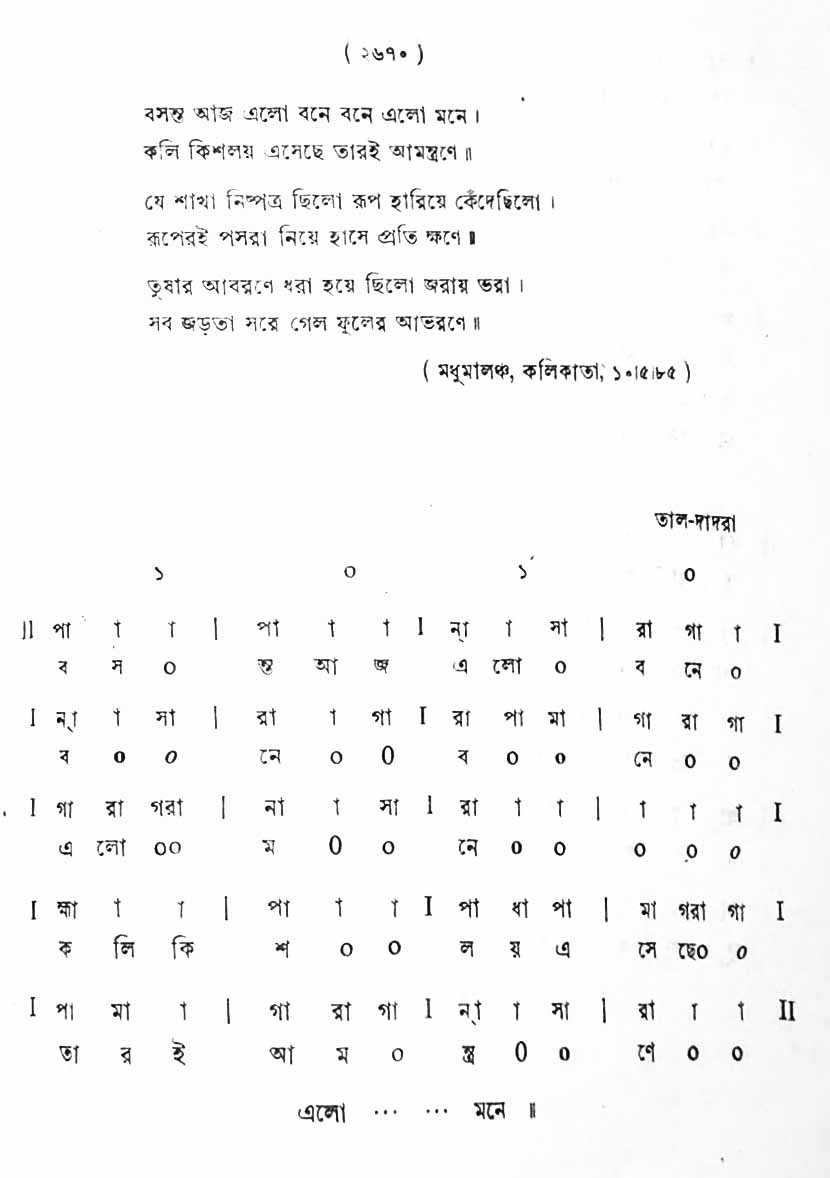 ( ২৬৭০ )
বসন্ত আজ এলো বনে বনে এলো মনে ।
কলি কিশলয় এসেছে তারই আমন্ত্রণে ॥
যে শাখা নিষ্পত্র ছিলো রূপ হারিয়ে কেঁদেছিলো ।
রূপেরই পসরা নিয়ে হাসে প্রতি ক্ষণে ॥
তুষার আবরণে ধরা হয়ে ছিলো জরায় ভরা ।
সব জড়তা সরে গেল ফুলের আভরণে ॥
( মধুমালঞ্চ, কলিকাতা, ১০।৫।৮৫ )
তাল-দাদরা
১ ০ ১ ০
II পা া া | পা া া I ন্া া সা | রা গা া I
ব স ০ ন্ত আ জ এ লো ০ ব নে ০
I ন্া া সা | রা া গা I রা পা মা | গা রা গা I
ব ০ ০ নে ০ ০ ব ০ ০ নে ০ ০
I গা রা গরা | না া সা I রা া া | া া া I
এ লো ০০ ম ০ ০ নে ০ ০ ০ ০ ০
I হ্মা া া | পা া া I পা ধা পা | মা গরা গা I
ক লি কি শ ০ ০ ল য় এ সে ছে০ ০
I পা মা া | গা রা গা I ন্া া সা | রা া া II
তা র ই আ ম ০ ন্ত্র ০ ০ ণে ০ ০
এলো ... ... মনে ॥